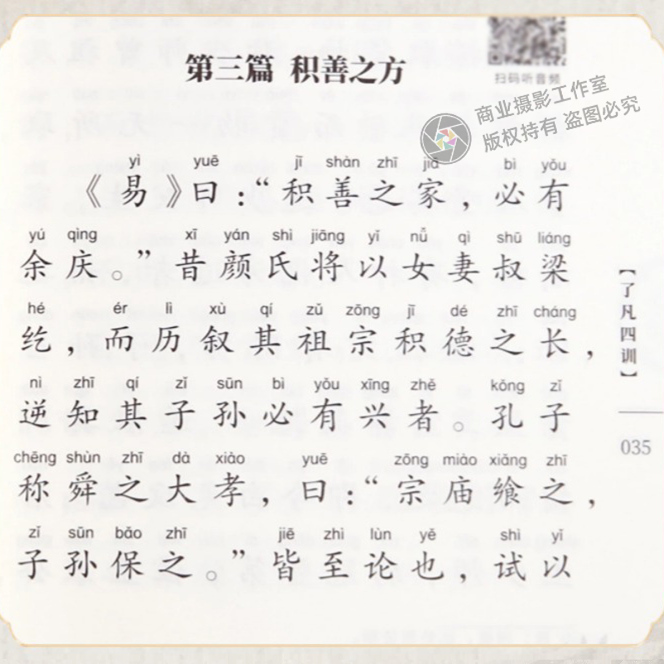 扫码听音频
第三篇 积善之方
商业摄影工作室
版权持有 盗图必究
yì yuē jī shàn zhī jiā bì yǒu
《易》曰：“积善之家，必有
yú qìng xī yán shì jiāng yǐ nǚ qì shū liáng
余庆。”昔颜氏将以女妻叔梁
hé ér lì xù qí zǔ zōng jī dé zhī cháng
纥，而历叙其祖宗积德之长，
nì zhī qí zǐ sūn bì yǒu xīng zhě kǒng zǐ
逆知其子孙必有兴者。孔子
chēng shùn zhī dà xiào yuē zōng miào xiǎng zhī
称舜之大孝 曰：“宗庙飨之，
zǐ sūn bǎo zhī jiē zhì lùn yě shì yǐ
子孙保之。”皆至论也，试以
【了凡四训】
035